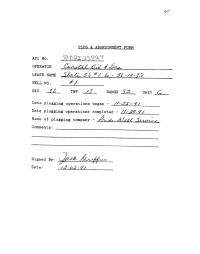 PLUG & ABANDONMENT FORM
API NO.
OPERATOR Coastal Oil & Gas
LEASE NAME State 36 #1
WELL NO. #1
SEC. 36 TWP 13 RANGE UNIT G
Date plugging operations began - 11-25-91
Date plugging operations completed - 11-29-91
Name of plugging company - Well Service
Comments:
Signed By: Jack Griffin
Date: 12-02-91